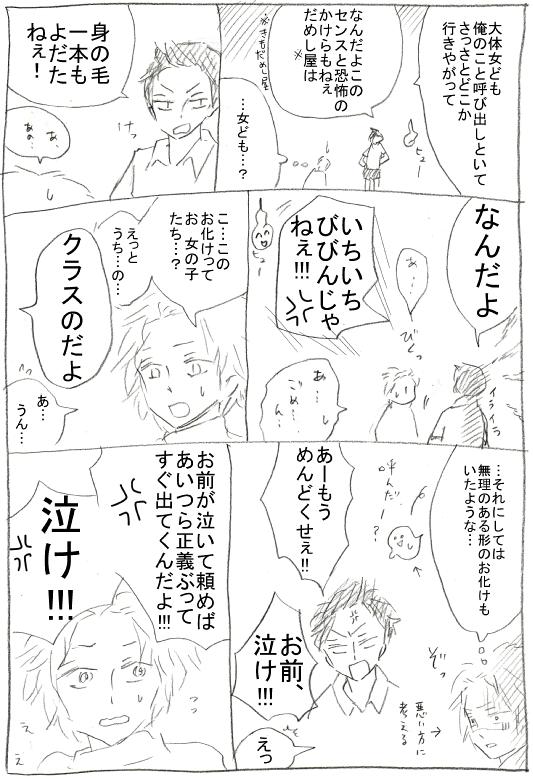 大体女ども
俺のこと呼び出しといて
さっさとどこか
行きやがって
ヒュー
なんだよこの
センスと恐怖の
かけらもねぇ
だめし屋は
※
※きもだめし屋
…女ども…?
身の毛
一本も
よだた
ねぇ!
けっ
あの…
あ…
なんだよ
イライラ
あ…
びくっ
いちいち
びびんじゃ
ねぇ!!!
ヒュー
あ…
ごめ…
ん…
こ…この
お化けって
お 女の子
たち…?
えっと
うち…の…
クラスのだよ
あ…
うん…
…それにしては
無理のある形のお化けも
いたような…
ぞっ
悪い方に
考える
呼んだー?
あーもう
めんどくせぇ!!
お前、
泣け!!!
えっ
お前が泣いて頼めば
あいつら正義ぶって
すぐ出てくんだよ!!!
泣け!!!
えっ
え